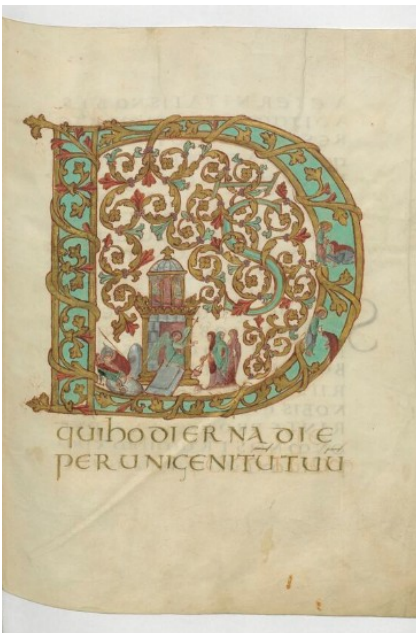 DS
QUIHODIERNA DIE
PERUNIGENITŪTUŪ